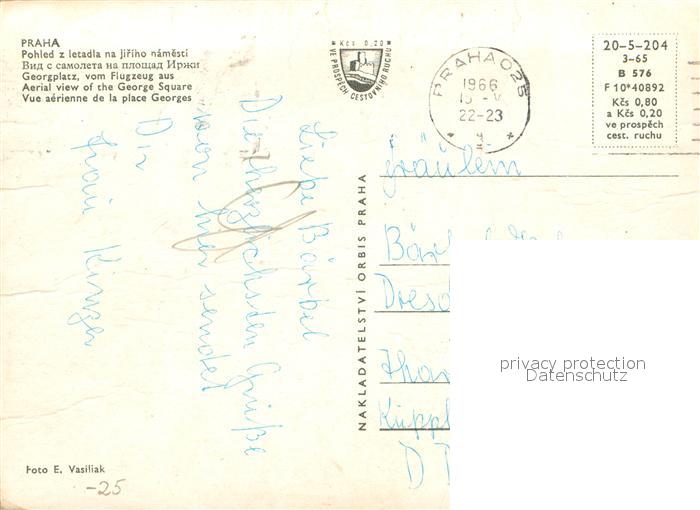 PRAHA
Pohled z letadla na Jiřího náměstí
Вид с самолета на площад Иржи
Georgplatz, vom Flugzeug aus
Aerial view of the George Square
Vue aérienne de la place Georges
Kčs 0,20
VE PROSPĚCH CESTOVNÍHO RUCHU
PRAHA 025
1966
22-23
20-5-204
3-65
B 576
F 10*40892
Kčs 0,80
a Kčs 0,20
ve prospěch
cest. ruchu
Liebe Bärbel
Die herzlichsten Grüße
von hier sendet
Dir
NAKLADATELSTVÍ ORBIS PRAHA
Fräulein
privacy protection
Datenschutz
Foto E. Vasiliak
-25